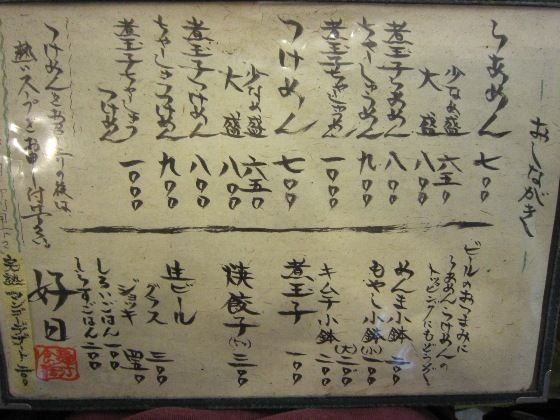 おしながき
らあめん 七〇〇
少なめ盛 六五〇
大盛 八〇〇
煮玉子らあめん 八〇〇
ちゃーしゅうらあめん 九〇〇
煮玉子ちゃーしゅうらあめん 一〇〇〇
つけめん 七〇〇
少なめ盛 六五〇
大盛 八〇〇
煮玉子つけめん 八〇〇
ちゃーしゅうつけめん 九〇〇
煮玉子ちゃーしゅう
つけめん 一〇〇〇
つけめんをお召し上がりの後は
熱いスープをお申し付け下さい
ビールのおつまみに
らあめん、つけめんの
トッピングにもどうぞ
めんま小鉢 二〇〇
もやし小鉢 (小)一〇〇
(大)二〇〇
キムチ小鉢 二〇〇
煮玉子 一〇〇
焼餃子 三〇〇
生ビール
グラス 三〇〇
ジョッキ 四五〇
しろいごはん 一〇〇
しらすごはん 二〇〇
好日
完熟マンゴーデザート